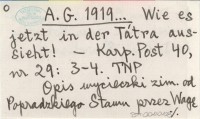 A. G. 1919... Wie es
jetzt in der Tátra aus-
sieht! – Karp. Post 40,
nr 29: 3-4. TNP
Opis wycieczki zim. od
Popradzkiego Stawu przez Wagę